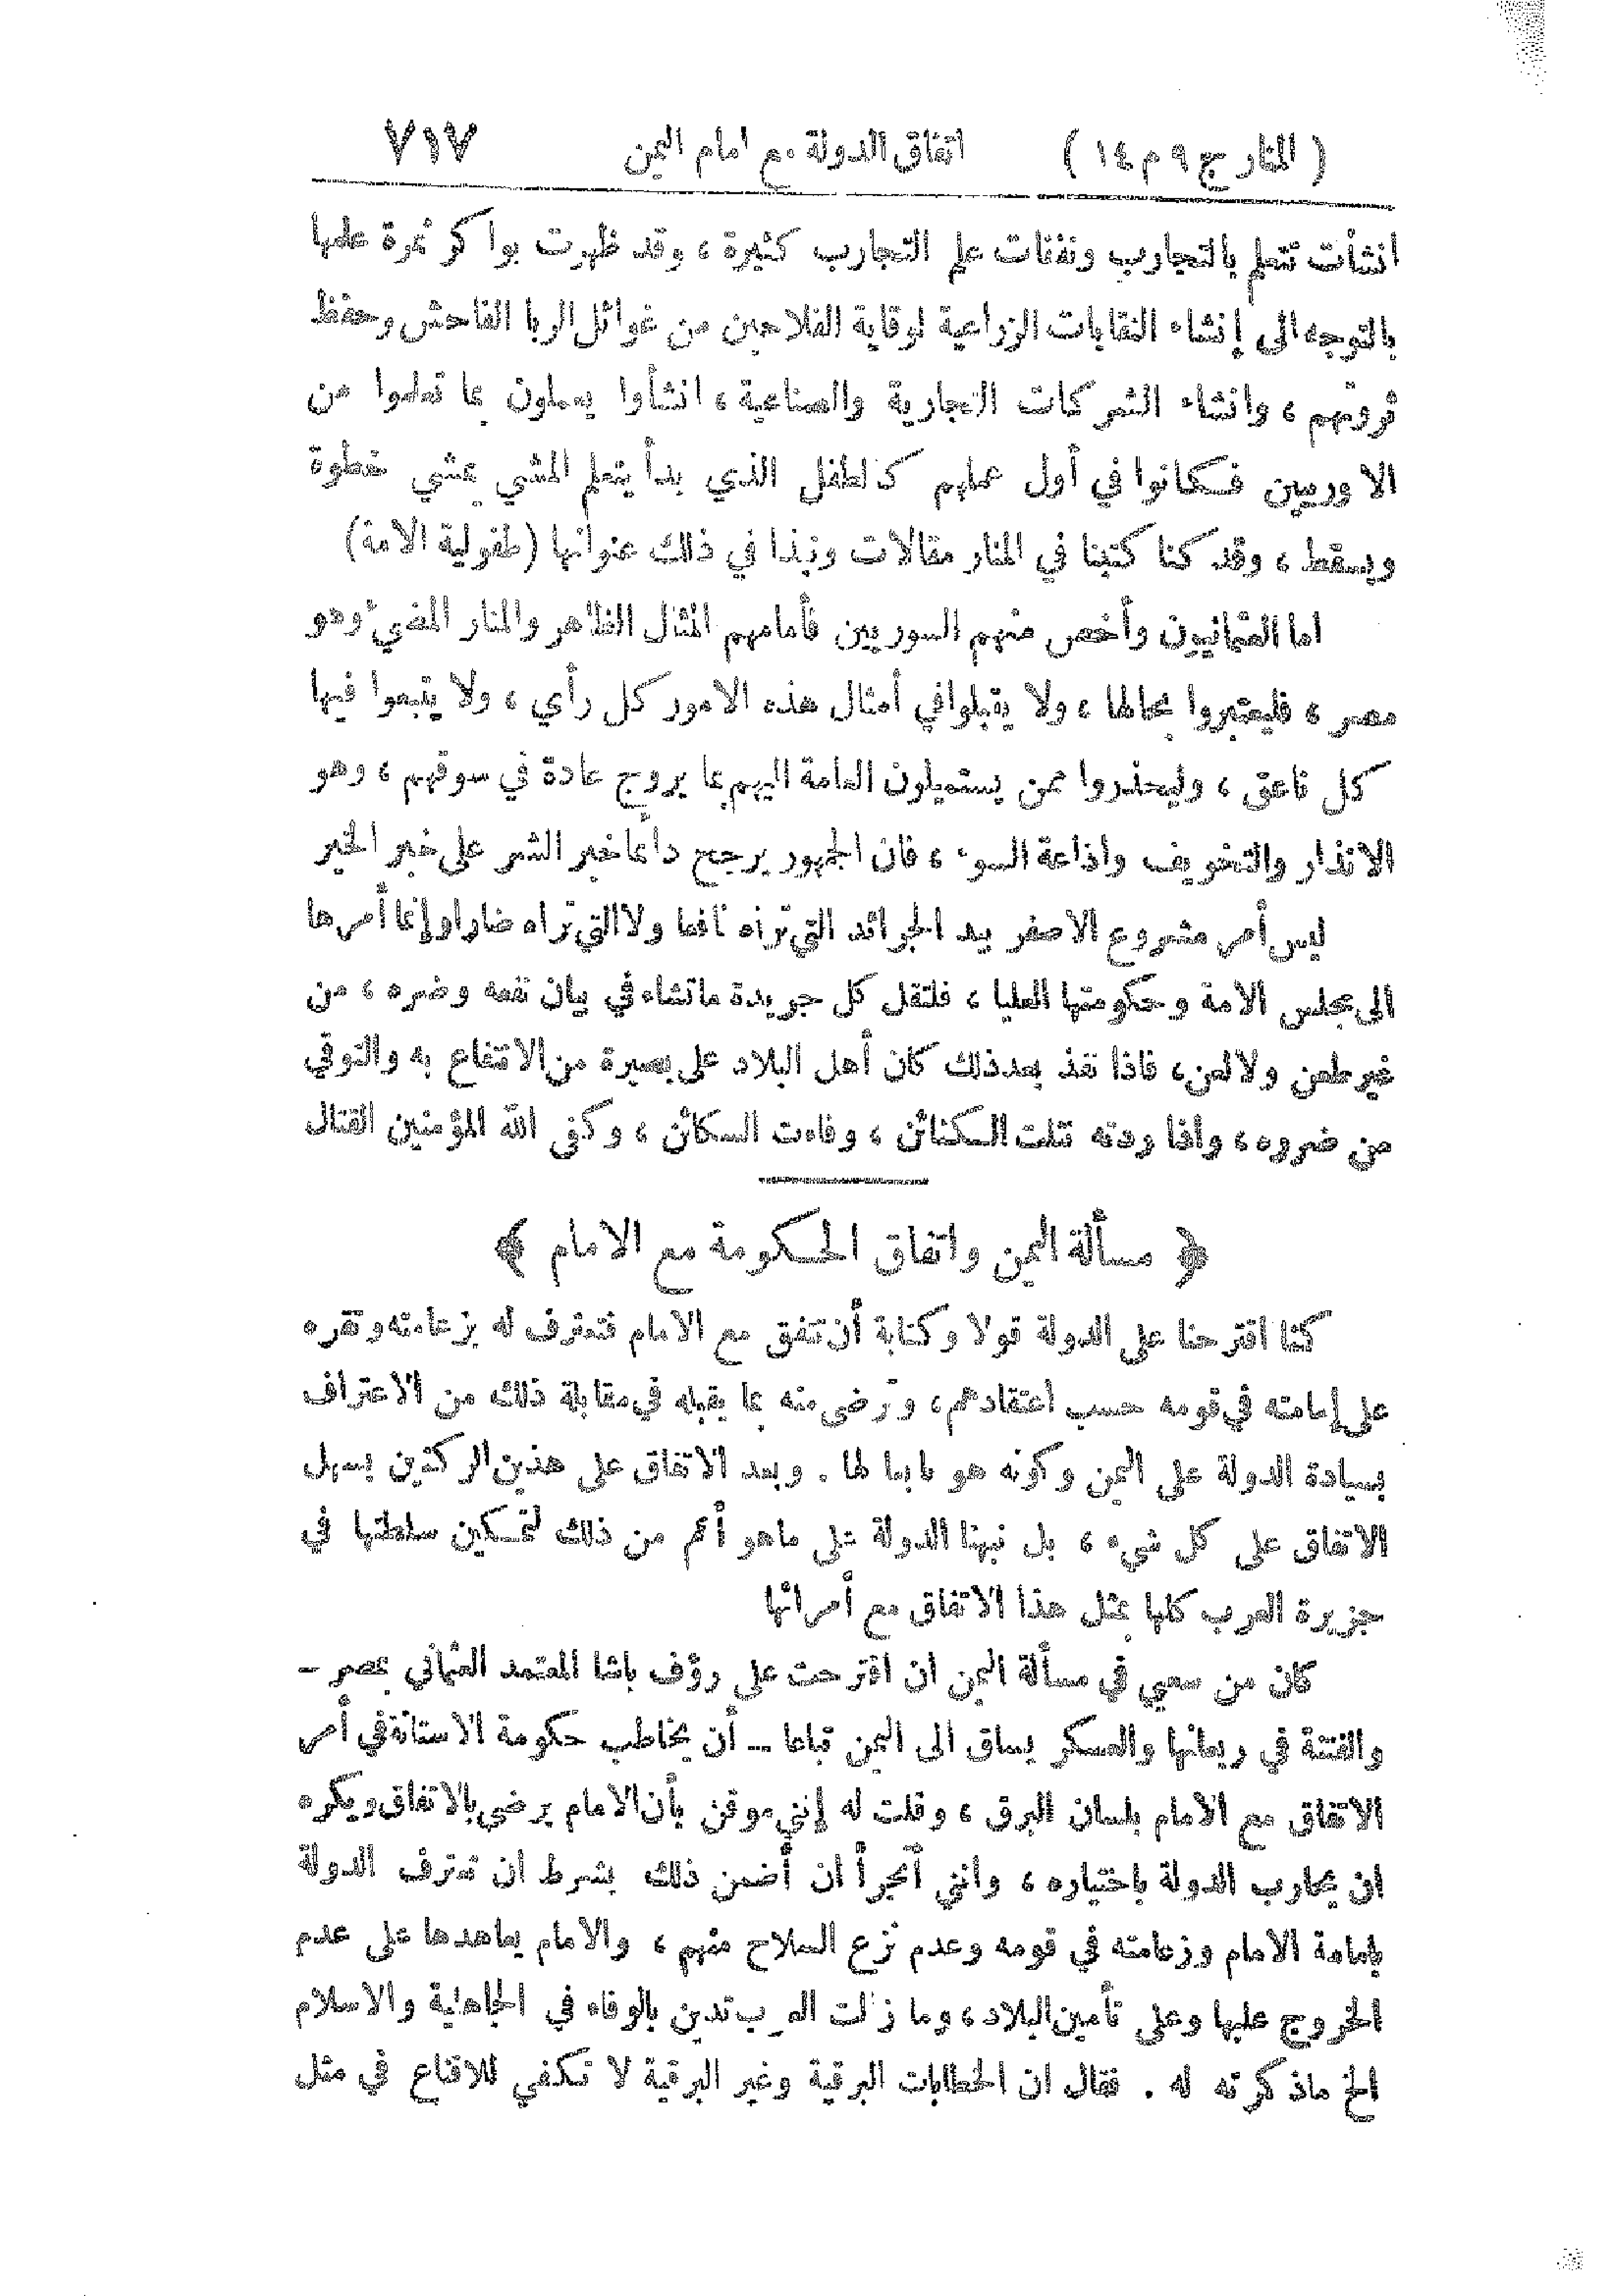 (المنار ج ٩ م ١٤) اتفاق الدولة مع امام اليمن ٧١٧
انشأت تتعلم بالتجارب ونفقات علم التجارب كثيرة ، وقد ظهرت بواكر ثمرة علمها
بالتوجه الى إنشاء النقابات الزراعية لوقاية الفلاحين من غوائل الربا الفاحش وحفظ
ثروتهم ، وانشاء الشركات التجارية والصناعية ، انشأوا يعملون بما تعلموا من
الاوربيين فكانوا في أول عملهم كالطفل الذي بدأ يتعلم المشي يمشي خطوة
ويسقط ، وقد كنا كتبنا في المنار مقالات ونبذا في ذلك عنوانها (طفولية الامة)
اما العثمانيون وأخص منهم السوريين فأمامهم المثال الظاهر والمنار المضيء وهو
مصر ، فليعتبروا بحالها ، ولا يقبلوا في أمثال هذه الامور كل رأي ، ولا يتبعوا فيها
كل ناعق ، وليحذروا ممن يستميلون العامة اليهم بما يروج عادة في سوقهم ، وهو
الانذار والتخويف واذاعة السوء ، فان الجمهور يرجح دائما خبر الشر على خبر الخير
ليس أمر مشروع الاصفر بيد الجرائد التي تراه نافعا ولا التي تراه ضارا وإنما أمرها
الى مجلس الامة وحكومتها العليا ، فلتقل كل جريدة ماتشاء في بيان نفعه وضره ، من
غير طعن ولا لعن، فاذا نفذ بعد ذلك كان أهل البلاد على بصيرة من الانتفاع به والتوقي
من ضروه ، واذا ردته نثلت الكنائن ، وفاءت السكائن ، وكفى الله المؤمنين القتال
﴿ مسألة اليمن واتفاق الحكومة مع الامام ﴾
كنا اقترحنا على الدولة قولا وكتابة أن تتفق مع الامام فتعترف له بزعامته وتقره
على إمامته في قومه حسب اعتقادهم ، وترضى منه بما يقبله في مقابلة ذلك من الاعتراف
بسيادة الدولة على اليمن وكونه هو تابعا لها . وبعد الاتفاق على هذين الركنين يسهل
الاتفاق على كل شيء ، بل نبهنا الدولة على ماهو أعم من ذلك لتمكين سلطتها في
جزيرة العرب كلها بمثل هذا الاتفاق مع أمرائها
كان من سعيي في مسألة اليمن ان اقترحت على رؤف باشا المعتمد العثماني بمصر –
والفتنة في ريعانها والعسكر يساق الى اليمن تباعا – أن يخاطب حكومة الاستانة في أمر
الاتفاق مع الامام بلسان البرق ، وقلت له إنني موقن بأن الامام يرضى بالاتفاق ويكره
ان يحارب الدولة باختياره ، وانني أتجرأ ان أضمن ذلك بشرط ان تعترف الدولة
بامامة الامام وزعامته في قومه وعدم نزع السلاح منهم ، والامام يعاهدها على عدم
الخروج عليها وعلى تأمين البلاد ، وما زالت العرب تدين بالوفاء في الجاهلية والاسلام
الخ ماذكرته له . فقال ان الخطابات البرقية وغير البرقية لا تكفي للاقناع في مثل